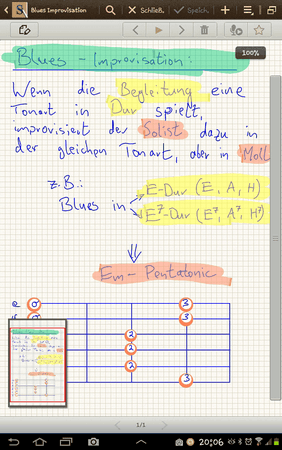 Blues Improvisation
Schließ.
Speich.
100%
Blues - Improvisation:
Wenn die Begleitung eine
Tonart in Dur spielt,
improvisiert der Solist dazu in
der gleichen Tonart, aber in Moll
z.B.:
Blues in
E-Dur (E, A, H)
E7-Dur (E7, A7, H7)
⇓
Em - Pentatonic
e 0 3
0 3
2
2
2
3
1/1
20:06